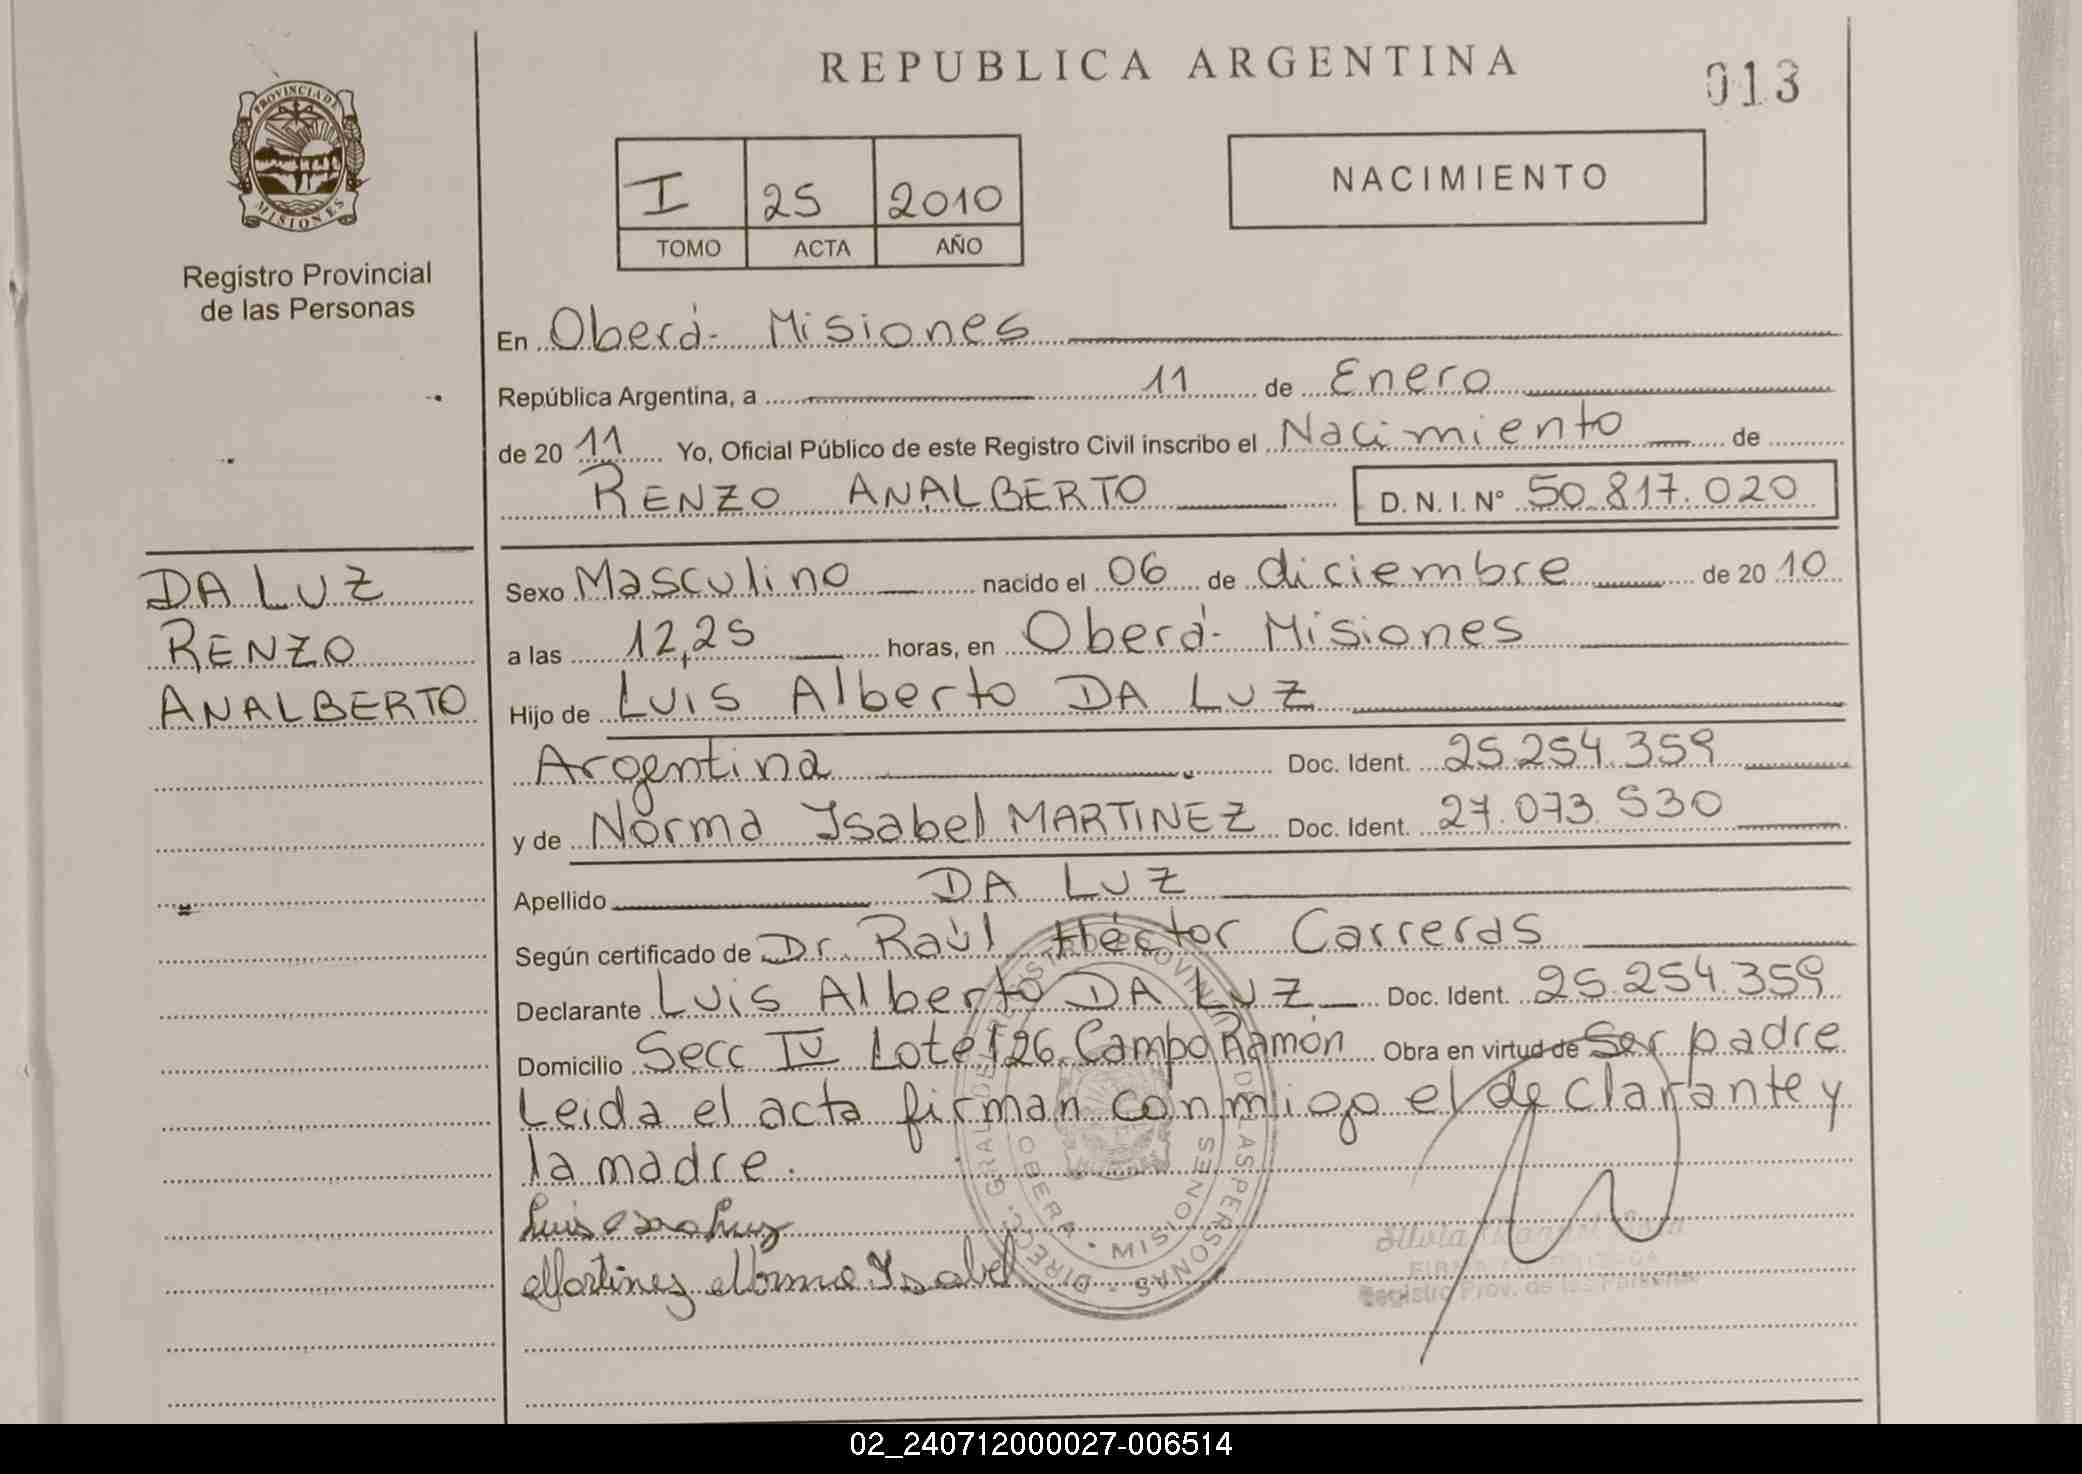 REPUBLICA ARGENTINA
013
PROVINCIA DE
MISIONES
Registro Provincial
de las Personas
I 25 2010
TOMO ACTA AÑO
NACIMIENTO
En Oberá- Misiones
República Argentina, a 11 de Enero
de 20 11 Yo, Oficial Público de este Registro Civil inscribo el Nacimiento de
RENZO ANALBERTO D.N.I.Nº 50.817.020
DA LUZ
RENZO
ANALBERTO
Sexo Masculino nacido el 06 de diciembre de 20 10
a las 12,25 horas, en Oberá- Misiones
Hijo de Luis Alberto DA LUZ
Argentina Doc. Ident. 25.254.359
y de Norma Isabel MARTINEZ Doc. Ident. 27.073.530
Apellido DA LUZ
Según certificado de Dr. Raúl Héctor Carreras
Declarante Luis Alberto DA LUZ Doc. Ident. 25.254.359
Domicilio Secc IV Lote 126 Campo Ramón Obra en virtud de Ser padre
Leida el acta firman conmigo el declarante y
la madre.
Luis Da Luz
Martinez Norma Isabel
OBERA - MISIONES
Registro Prov. de las Personas
02_240712000027-006514